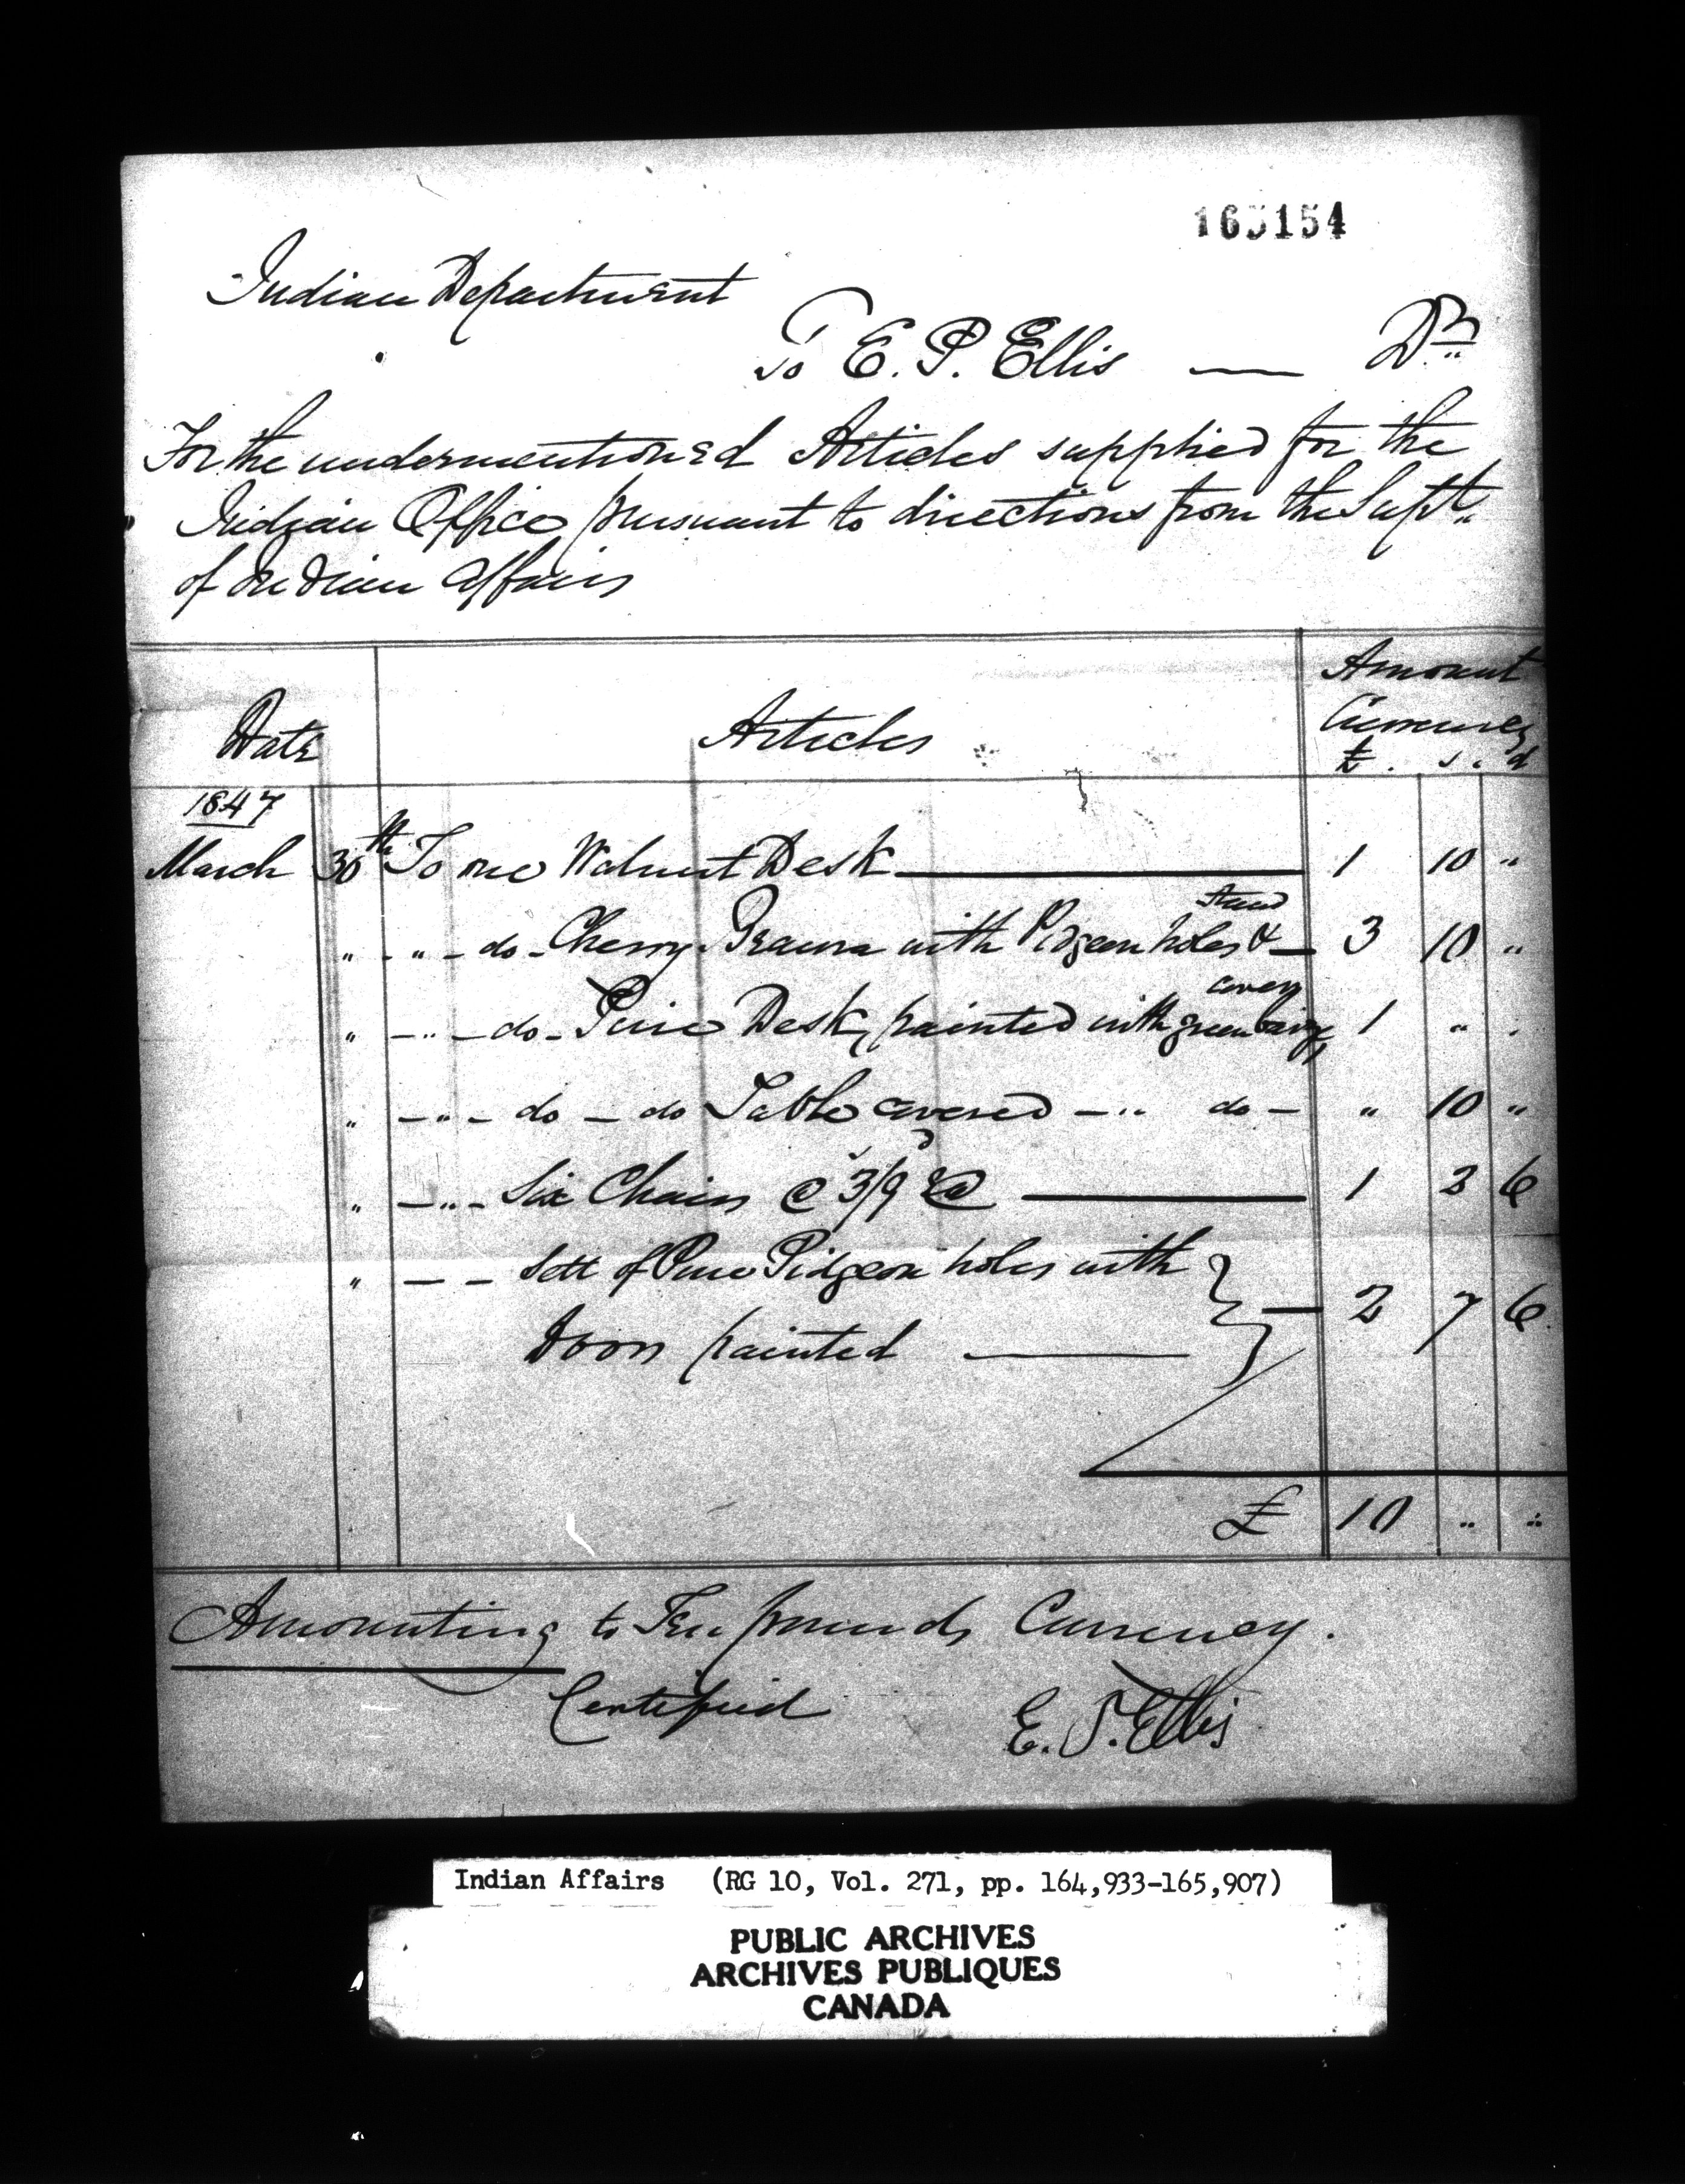 165154
Indian Department
To E. P. Ellis — Dr
For the undermentioned Articles supplied for the
Indian Office pursuant to directions from the Supt
of Indian Affairs
Date Articles Amount Currency
£ . s . d
1847
March 30th To one Walnut Desk — 1 10 "
" - " - do - Cherry with Pidgeon holes & Stand — 3 10 "
" - " - do - Pine Desk, painted with green covering 1 " "
" - " - do - do Table covered - " do - " 10 "
" - " - Six Chairs @ 3/9 — 1 2 6
" - - Sett of Pine Pidgeon holes with
Doors painted — 2 7 6
£ 10 " "
Amounting to Ten pounds Currency.
Certified E. P. Ellis
Indian Affairs (RG 10, Vol. 271, pp. 164,933-165,907)
PUBLIC ARCHIVES
ARCHIVES PUBLIQUES
CANADA